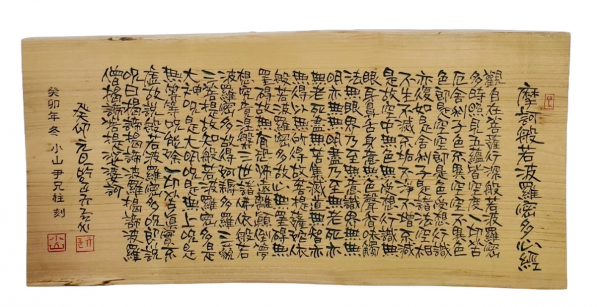 摩訶般若波羅密多心經
觀自在菩薩行深般若波羅密
多時照見五縕皆空度一切苦
厄舍利子色不異空空不異色
色卽是空空卽是色受想行識
亦復如是舍利子是諸法空相
不生不滅不垢不淨不增不減
是故空中無色無受想行識無
眼耳鼻舌身意無色聲香味觸
法無眼界乃至無意識界無無
明亦無無明盡乃至無老死亦
無老死盡無苦集滅道無智亦
無得以無所得故菩提薩埵依
般若波羅密多故心無罣碍無
罣碍故無有恐怖遠離顚倒夢
想究竟涅槃三世諸佛依般若
波羅密多故得阿耨多羅三藐
三菩提故知般若波羅密多是
大神呪是大明呪是無上呪是
無等等呪能除一切苦眞實不
虛故說般若波羅密多呪卽說
呪曰揭諦揭諦波羅揭諦波羅
僧揭諦菩提娑婆訶
癸卯元旦
癸卯年冬 小山 尹兄柱 刻